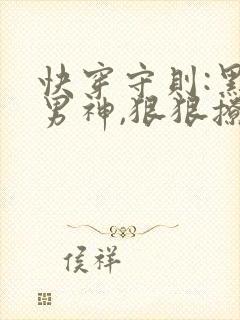 快穿守則:黑
男神,狠狠撩
侯祥